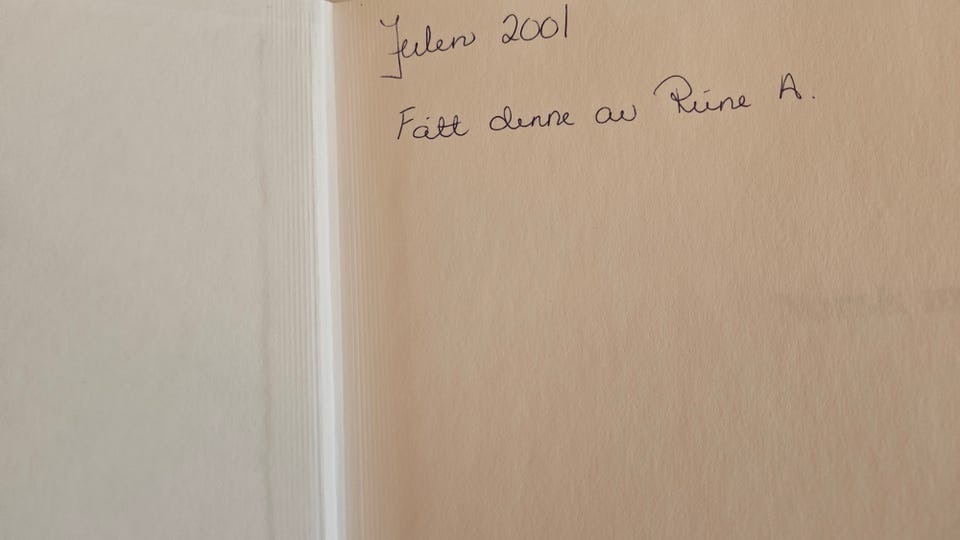 Julen 2001
Fått denne av Rune A.